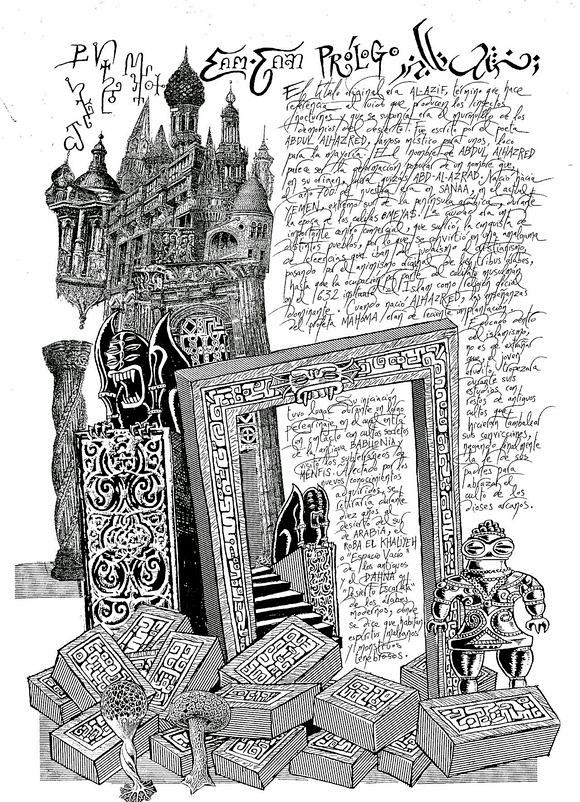 PRÓLOGO
El título original era AL-AZIF, término que hace
referencia al ruido que producen los insectos
nocturnos y que se suponía era el murmullo de los
demonios del desierto. Fue escrito por el poeta
ABDUL ALHAZRED, famoso místico para unos, loco
para la mayoría. El nombre de ABDUL ALHAZRED
parece ser la denominación popular de un hombre que,
en su origen, ABD-AL-AZRAD, Nació hacia
el año 700 de nuestra era en SANAA, en el actual
YEMEN, extremo sur de la península arábica, durante
la época de los califas OMEYAS. La ciudad era un
importante centro comercial, que sufrió la conquista de
distintos pueblos, por lo que se convirtió en una amalgama
de creencias que iban del judaísmo al cristianismo
pasando por el animismo de las tribus árabes,
hasta que la ocupación por parte del califato musulmán
en el 632 instauró el Islam como religión oficial
dominante. Cuando nació ALHAZRED, las enseñanzas
del profeta MAHOMA eran de reciente implantación.
Educado dentro
del islamismo,
no es de extrañar
que, el joven
erudito, tropezara
durante sus
estudios con
restos de antiguos
cultos que
hicieron tambalear
sus convicciones,
renegando finalmente
de la fe de sus
padres para
abrazar el
culto de los
dioses arcanos.
Su iniciación
tuvo lugar durante un largo
peregrinaje, en el que entra
en contacto con cultos secretos
de la antigua BABILONIA y
en los subterráneos de
MENFIS. Afectado por los
nuevos conocimientos
adquiridos, se
retiraría durante
diez años al
desierto del sur
de ARABIA, el
ROBA EL KHALIYEH
o "Espacio Vacío"
de los antiguos
y el DAHNA o
"Desierto Escarlata"
de los árabes
modernos, donde
se dice que habitan
espíritus malignos
y monstruos
tenebrosos.